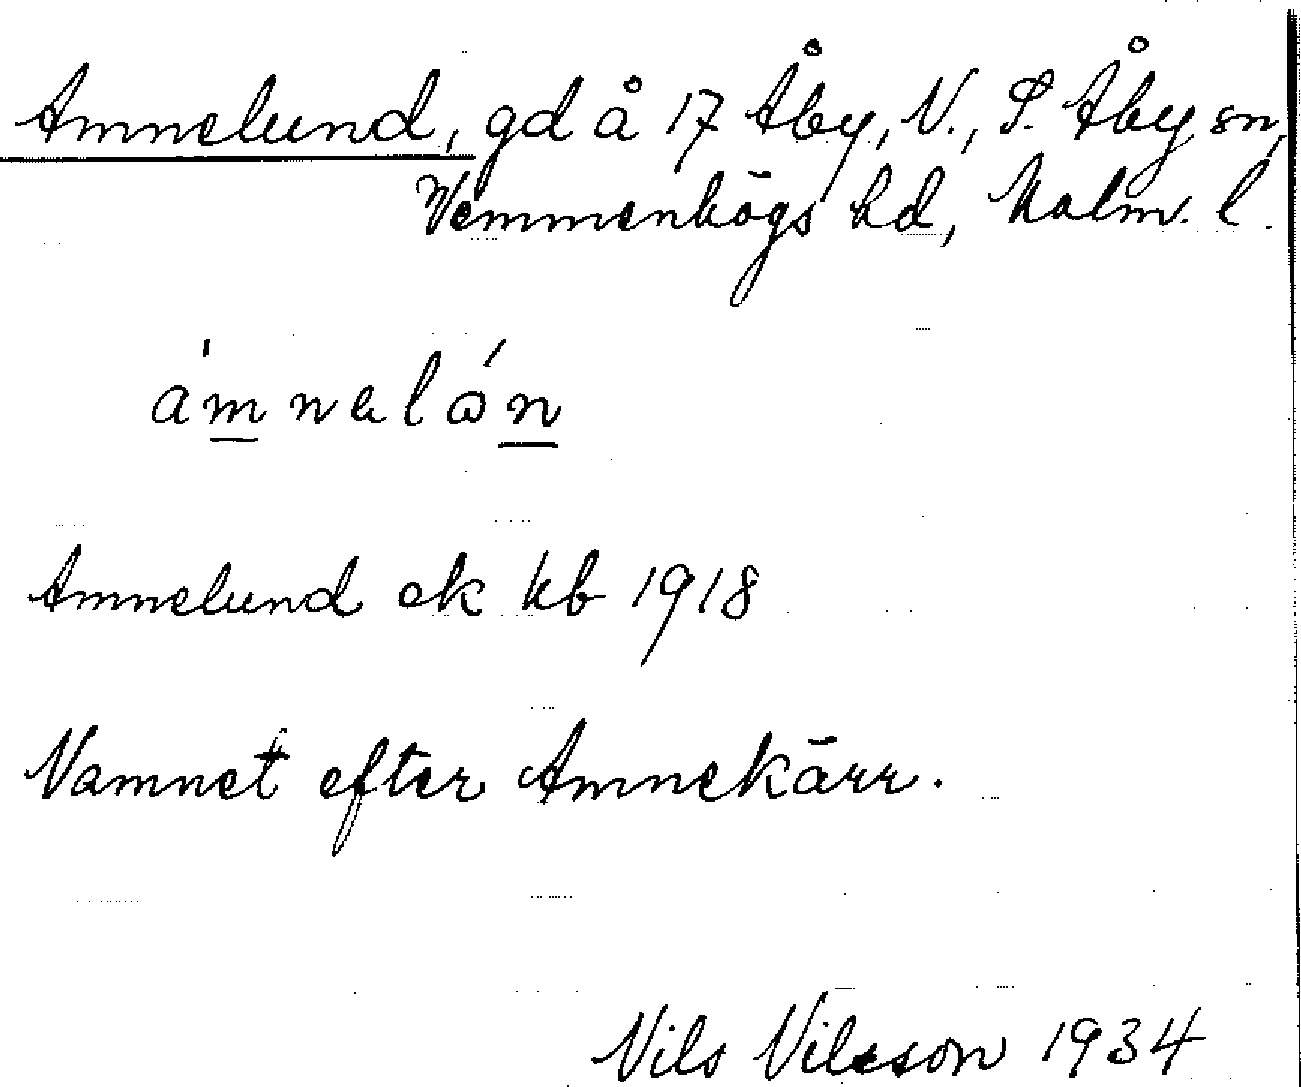 Amnelund, gd å 17 Åby, N., S. Åby sn,
Vemmenhögs hd, Malm. l.
ámnalón
Amnelund ek kb 1918
Namnet efter Amnekärr.
Nils Nilsson 1934